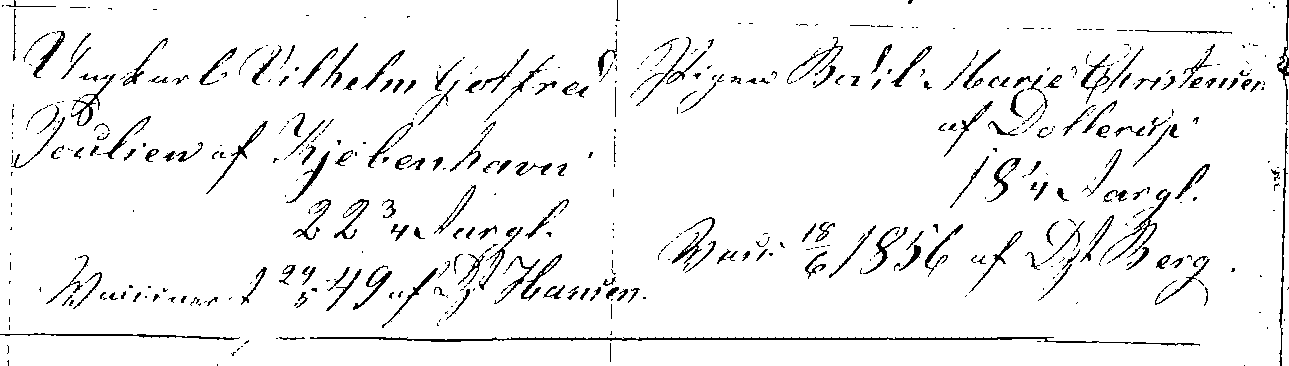 Ungkarl Vilhelm Gotfred
Poulsen af Kjøbenhavn
22 3/4 Aargl.
Vaccineret 24/5 49 af Dr Hansen.
Pigen Bodil Marie Christensen
af Dollerup
18 1/4 Aargl.
Vacc 18/6 1856 af Dr Berg.